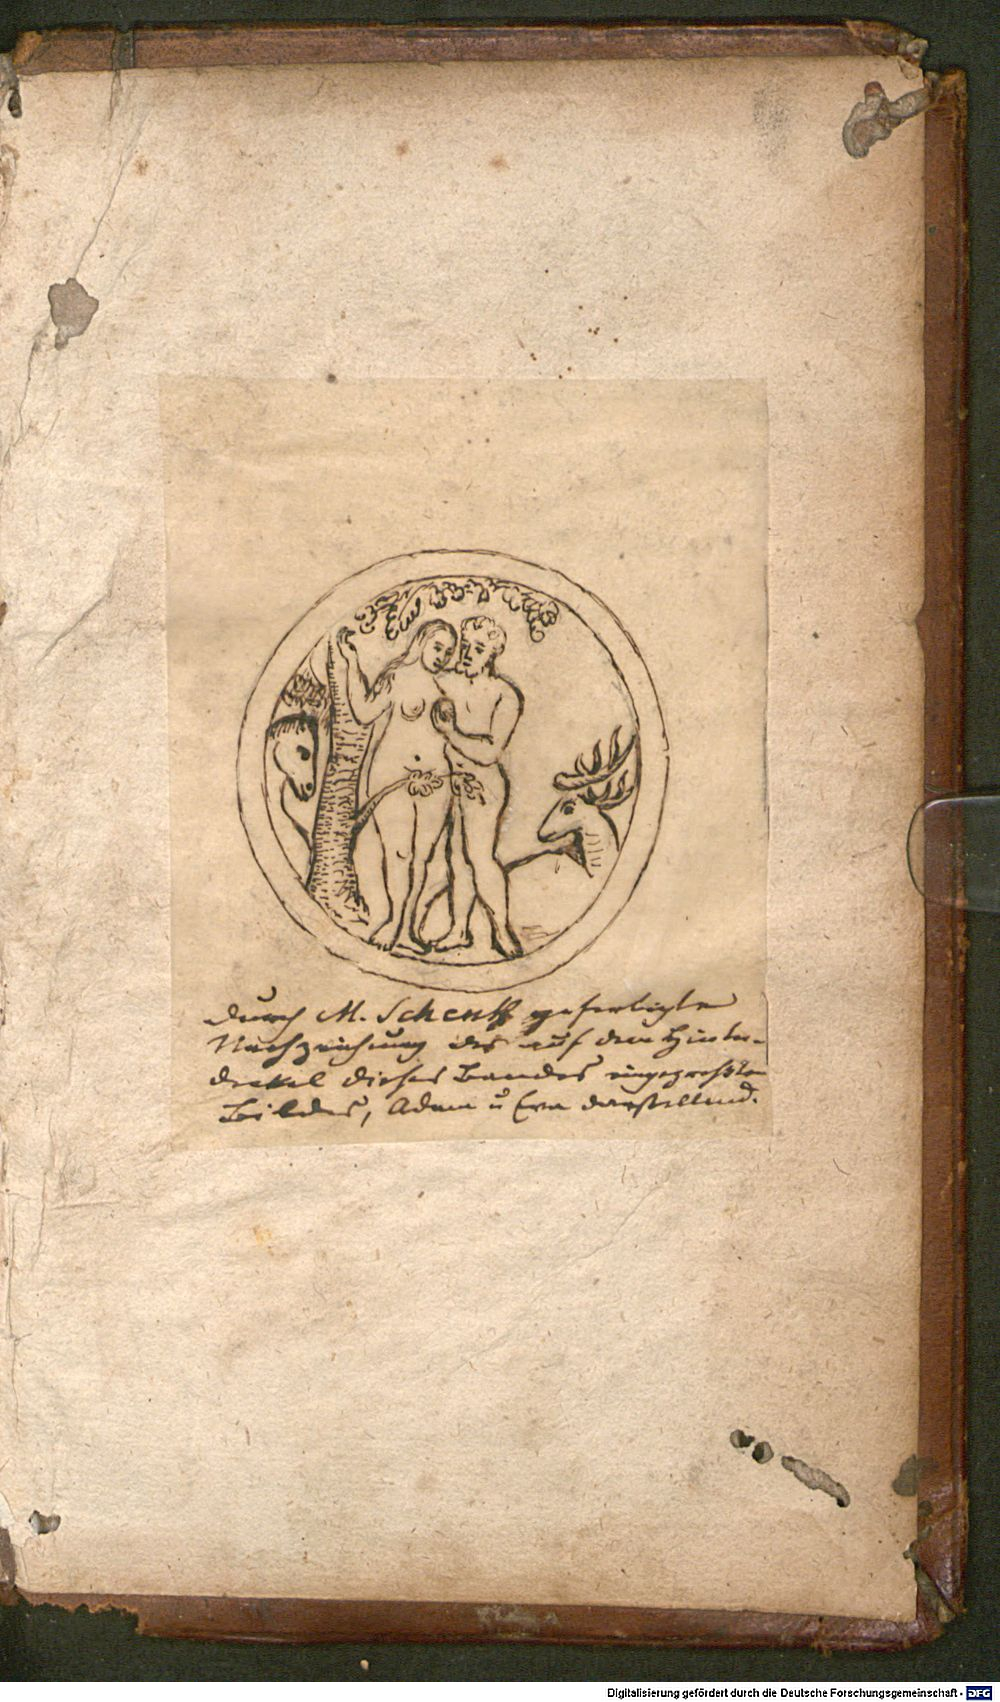 durch M. Schenk gefertigte
Nachzeichnung des auf dem Hinter-
deckel dieses Bandes eingepreßten
Bildes, Adam u Eva darstellend.
Digitalisierung gefördert durch die Deutsche Forschungsgemeinschaft - DFG